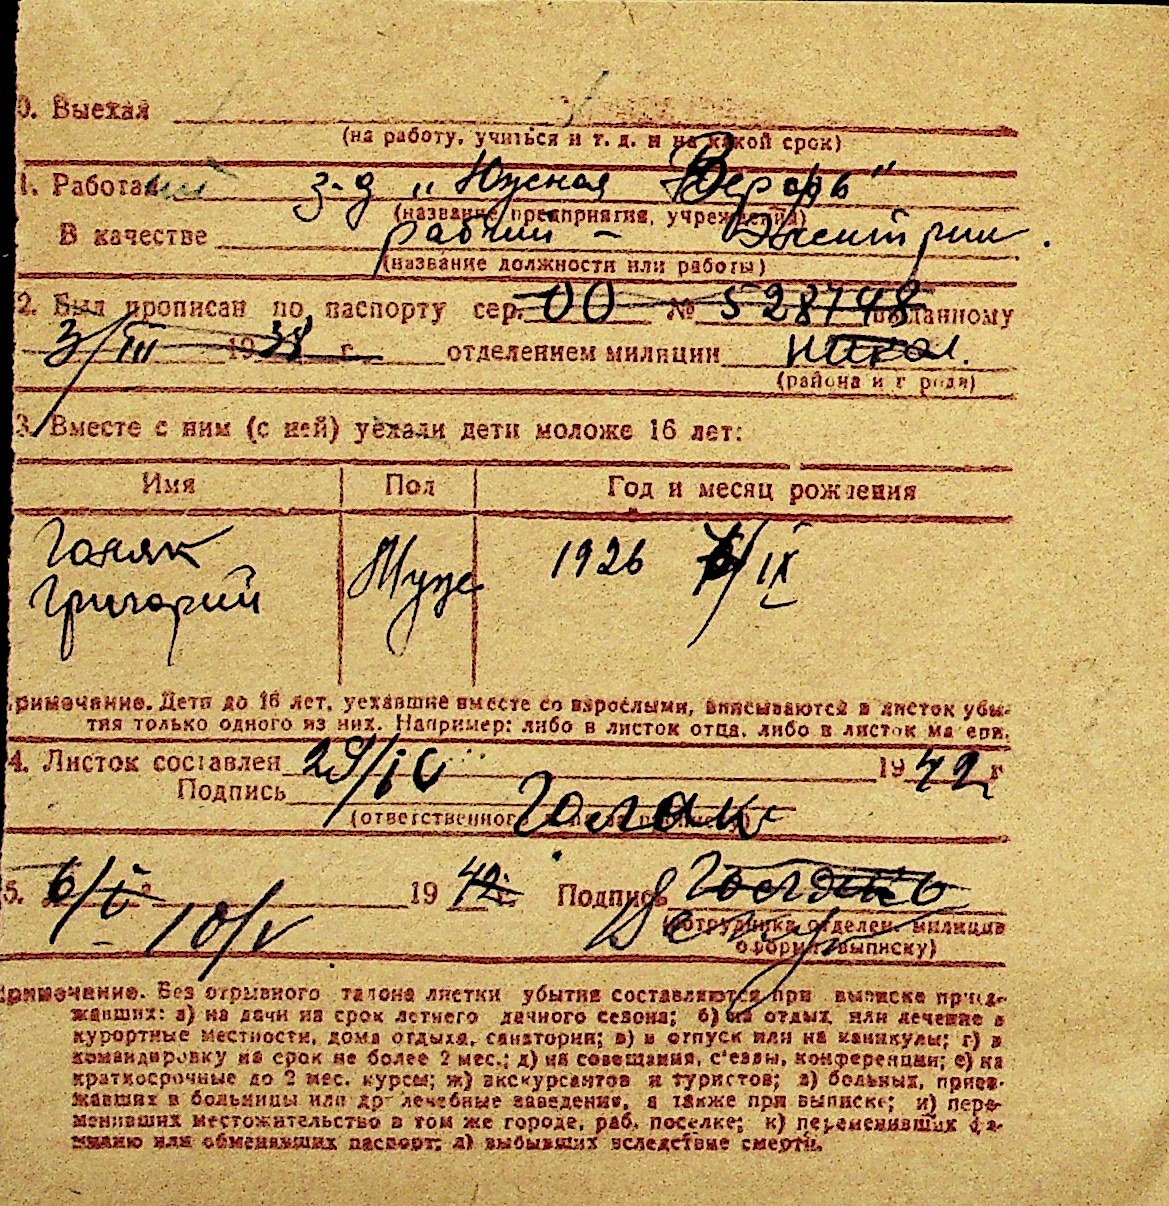 0. Выехал
(на работу, учиться и т. д. и на какой срок)
1. Работал з-д „Южная Верфь"
(название предприятия, учреждения)
В качестве рабчий -
(название должности или работы)
2. Был прописан по паспорту сер. 00 № 528748 выданному
3/III 1938 г. отделением милиции Никол.
(района и города)
3. Вместе с ним (с ней) уехали дети моложе 16 лет:
Имя Пол Год и месяц рождения
Гопяк Муж 1926 /IX
Григорий
Примечание. Дети до 16 лет, уехавшие вместе со взрослыми, вписываются в листок убы-
тия только одного из них. Например: либо в листок отца, либо в листок матери.
4. Листок составлен 29/IV 1942 г
Подпись
(ответственного
5. 6/V 1942 г. Подпись
10/V
(сотрудника отделен. милиции
оформ. выписку)
Примечание. Без отрывного талона листки убытия составляются при выписке приез-
жавших: а) на дачи на срок летнего дачного сезона; б) на отдых или лечение в
курортные местности, дома отдыха, санатории; в) в отпуск или на каникулы; г) в
командировку на срок не более 2 мес.; д) на совещания, с'езды, конференции; е) на
краткосрочные до 2 мес. курсы; ж) экскурсантов и туристов; з) больных, приез-
жавших в больницы или др. лечебные заведение, а также при выписке; и) пере-
менивших местожительство в том же городе, раб. поселке; к) переменивших фа-
милию или обменявших паспорт; л) выбывших вследствие смерти.